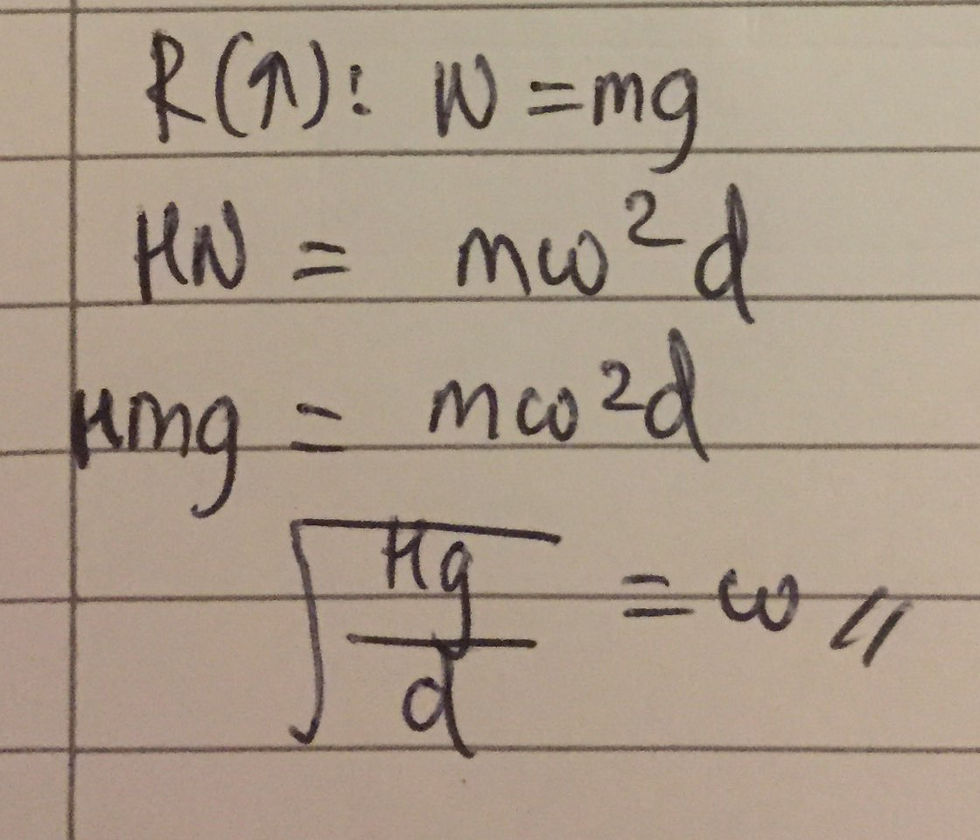 R(↑): N = mg
μN = mω²d
μmg = mω²d
√(μg/d) = ω //